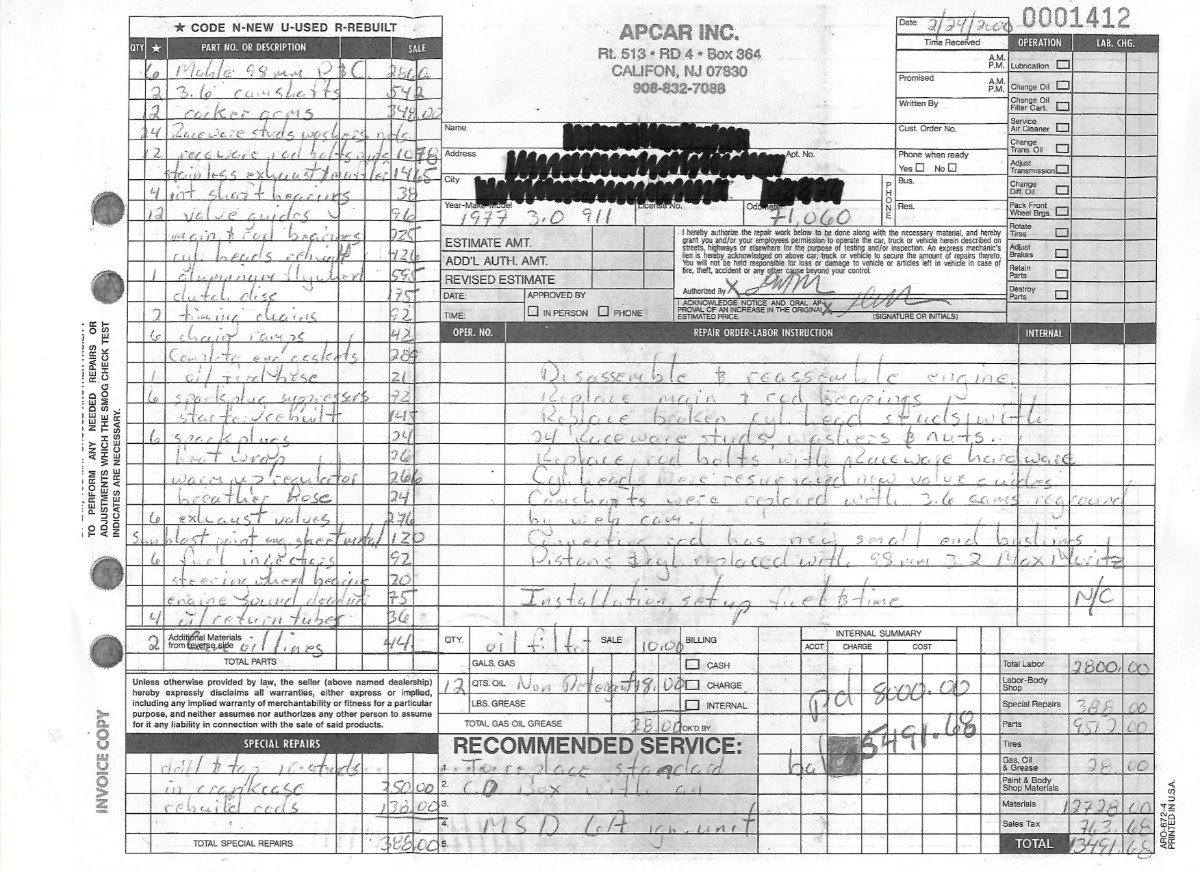 ★ CODE N-NEW U-USED R-REBUILT
QTY ★ PART NO. OR DESCRIPTION SALE
6 Mahle 98 mm P & C. 2860
2 3.6 camshafts 542
12 rocker arms 348.00
24 Raceware studs washers nuts
12 raceware rod bolts nuts 1078
stainless exhaust muffler 1465
4 int shaft bearings 38
12 valve guides 96
main & rod bearings 225
cyl. heads rebuilt 426
1 555
clutch disc 175
2 timing chains 92
6 chain ramps 42
Complete eng gaskets 289
1 oil feed hose 21
6 sparkplug suppressors 72
starter rebuilt 145
6 sparkplugs 24
heat wrap 26
warm up regulator 266
breather hose 24
6 exhaust valves 276
blast paint eng. sheet metal 120
6 fuel injectors 92
steering wheel bearing 20
engine sound 75
4 oil return tubes 36
2 Additional Materials from reverse side oil lines 44
TOTAL PARTS
Unless otherwise provided by law, the seller (above named dealership)
hereby expressly disclaims all warranties, either express or implied,
including any Implied warranty of merchantability or fitness for a particular
purpose, and neither assumes nor authorizes any other person to assume
for it any liability in connection with the sale of said products.
SPECIAL REPAIRS
drill & tap studs
in crankcase 250.00
rebuild rods 138.00
TOTAL SPECIAL REPAIRS 388.00
TO PERFORM ANY NEEDED REPAIRS OR
ADJUSTMENTS WHICH THE SMOG CHECK TEST
INDICATES ARE NECESSARY.
INVOICE COPY
APCAR INC.
Rt. 513 • RD 4 • Box 364
CALIFON, NJ 07830
908-832-7088
Name
Address Apt. No.
City
Year-Make-Model License No. Odometer
1977 3.0 911 71,060
ESTIMATE AMT.
ADD'L AUTH. AMT.
REVISED ESTIMATE
DATE: APPROVED BY
TIME: IN PERSON PHONE
Date 2/24/2000
0001412
Time Received
A.M.
P.M.
Promised A.M.
P.M.
Written By
Cust. Order No.
Phone when ready
Yes No
PHONE
Bus.
Res.
I hereby authorize the repair work below to be done along with the necessary material, and hereby
grant you and/or your employees permission to operate the car, truck or vehicle herein described on
streets, highways or elsewhere for the purpose of testing and/or inspection. An express mechanic's
lien is hereby acknowledged on above car, truck or vehicle to secure the amount of repairs thereto.
You will not be held responsible for loss or damage to vehicle or articles left in vehicle in case of
fire, theft, accident or any other cause beyond your control.
Authorized By X
I ACKNOWLEDGE NOTICE AND ORAL AP-
PROVAL OF AN INCREASE IN THE ORIGINAL
ESTIMATED PRICE. X
(SIGNATURE OR INITIALS)
OPERATION LAB. CHG.
Lubrication
Change Oil
Change Oil Filter Cart.
Service Air Cleaner
Change Trans. Oil
Adjust Transmission
Change Diff. Oil
Pack Front Wheel Brgs.
Rotate Tires
Adjust Brakes
Retain Parts
Destroy Parts
OPER. NO. REPAIR ORDER-LABOR INSTRUCTION INTERNAL
Disassemble & reassemble engine.
Replace main & rod bearings
Replace broken cyl head studs with
24 Raceware studs, washers & nuts.
Replace rod bolts with Raceware hardware
Cyl. heads were resurfaced new valve guides
Camshafts were replaced with 3.6 cams reground
by web cam.
Connecting rod has new small end bushings
Pistons & cyl replaced with 98 mm 3.2 Max Moritz
Installation, set up fuel & time N/C
QTY. oil filter SALE 10.00 BILLING
GALS. GAS CASH
12 QTS. OIL Non Detergent 18.00 CHARGE
LBS. GREASE INTERNAL
TOTAL GAS OIL GREASE 28.00 OK'D BY
INTERNAL SUMMARY
ACCT CHARGE COST
pd 8000.00
bal 5491.68
RECOMMENDED SERVICE:
1. To replace standard
2. CD Box with an
3.
4. MSD 6A ign. unit
5.
Total Labor 2800.00
Labor-Body Shop
Special Repairs 388 00
Parts 9512 00
Tires
Gas, Oil & Grease 28.00
Paint & Body Shop Materials
Materials 12728.00
Sales Tax 763.68
TOTAL 13491.68
ARO-672-4
PRINTED IN U.S.A.